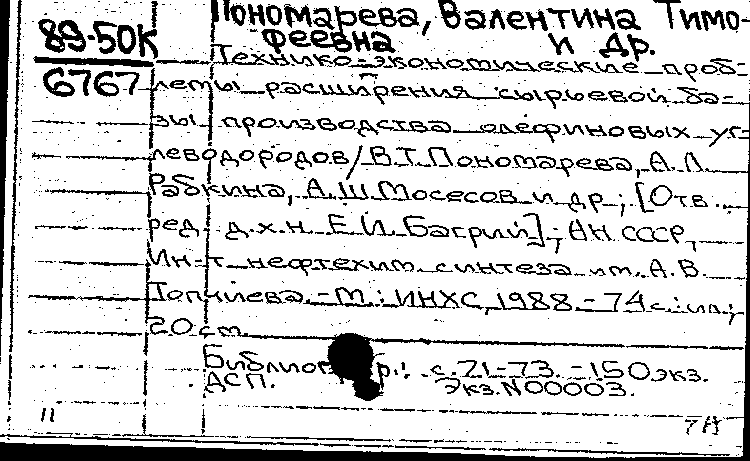 Пономарева, Валентина Тимо-
89-50К
феевна и др.
Технико-экономические проб-
6767
лемы расширения сырьевой ба-
зы производства олефиновых уг-
леводородов/В.Т.Пономарева, А.Л.
Рабкина, А.Ш.Мосесов и др.; [Отв.
ред. д.х.н. Е.И.Багрий]; АН СССР,
Ин-т нефтехим. синтеза им. А.В.
Топчиева.-М.: ИНХС, 1988.-74с.: ил;
20 см.
Библиогр.: с.71-73. -150 экз.
ДСП. Экз.N00003.
11